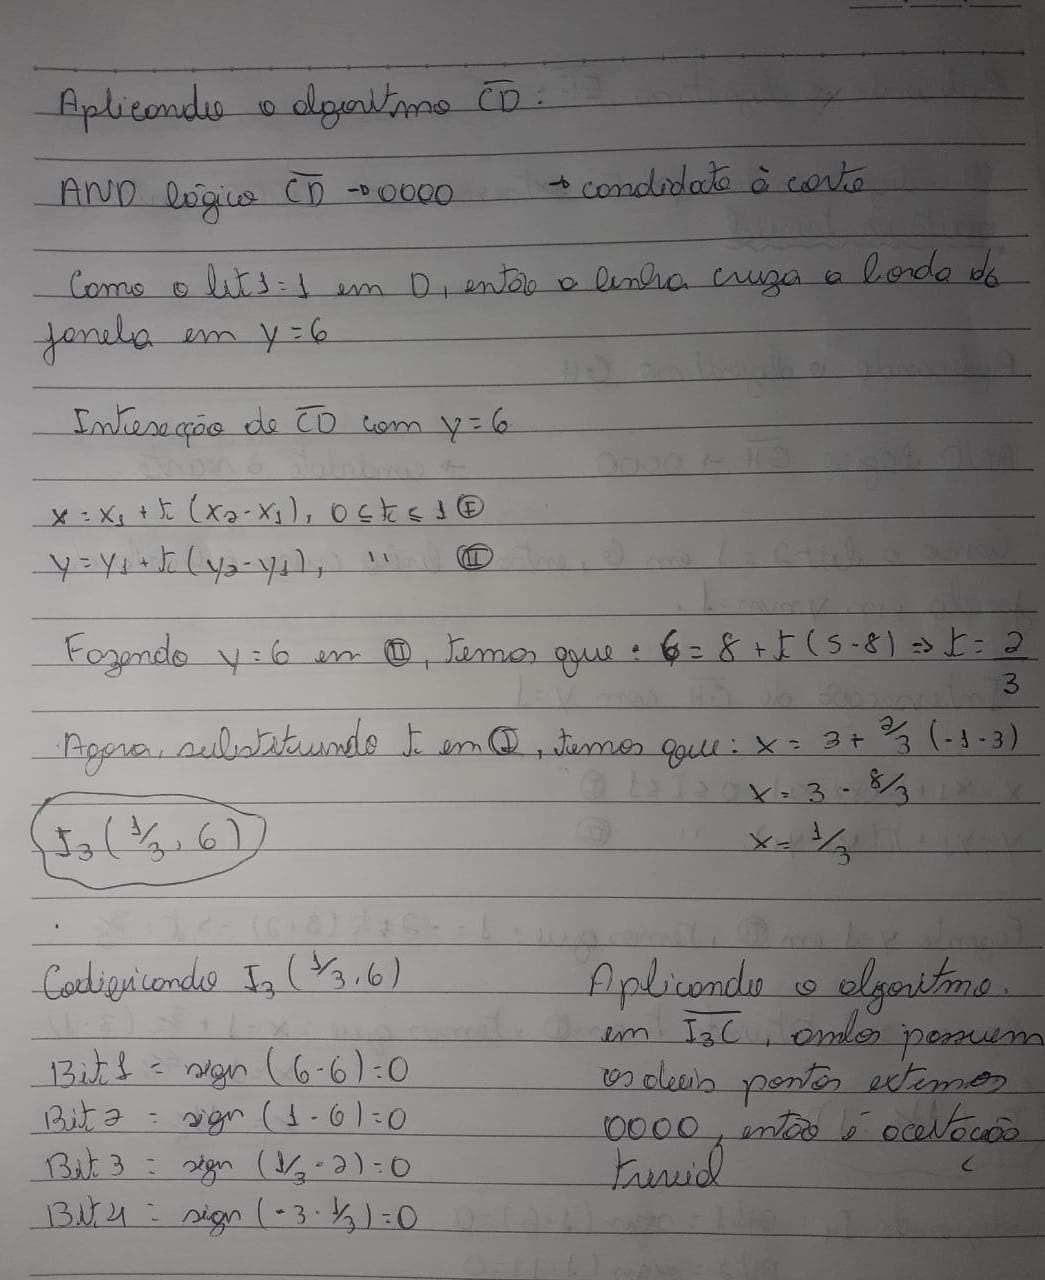 Aplicando o algoritmo C̅D̅:
AND lógico C̅D̅ → 0000 → candidato à corte
Como o bit 1 = 1 em D, então a linha cruza a borda da
janela em y = 6
Intersecção de C̅D̅ com y = 6
x = x₁ + t (x₂ - x₁), 0 ≤ t ≤ 1 Ⓘ
y = y₁ + t (y₂ - y₁), '' Ⓘ̲Ⓘ
Fazendo y = 6 em Ⅱ, temos que: 6 = 8 + t (5 - 8) ⇒ t = 2/3
Agora, substituindo t em Ⓘ, temos que: x = 3 + 2/3 (-1 - 3)
x = 3 - 8/3
x = 1/3
I₃ (1/3, 6)
Codificando I₃ (1/3, 6)
Bit 1 = sign (6 - 6) = 0
Bit 2 = sign (1 - 6) = 0
Bit 3 = sign (1/3 - 2) = 0
Bit 4 = sign (-3 - 1/3) = 0
Aplicando o algoritmo
em I̅₃C̅, ambos possuem
os dois pontos extemos
0000, então é aceitação
trivial